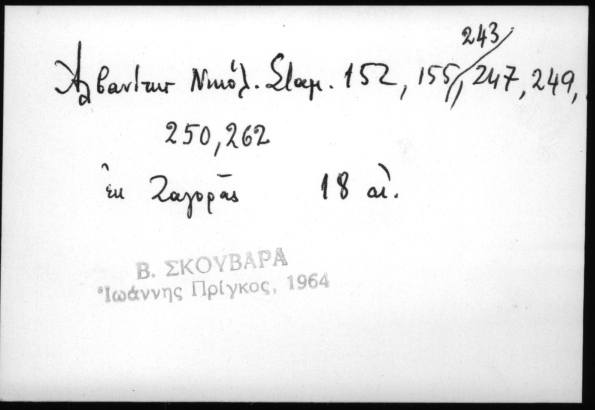 243
Ἀλβανίτης Νικόλ. Σταμ. 152, 155, 247, 249,
250, 262
ἐκ Ζαγορᾶς 18 αἰ.
Β. ΣΚΟΥΒΑΡΑ
Ἰωάννης Πρίγκος, 1964